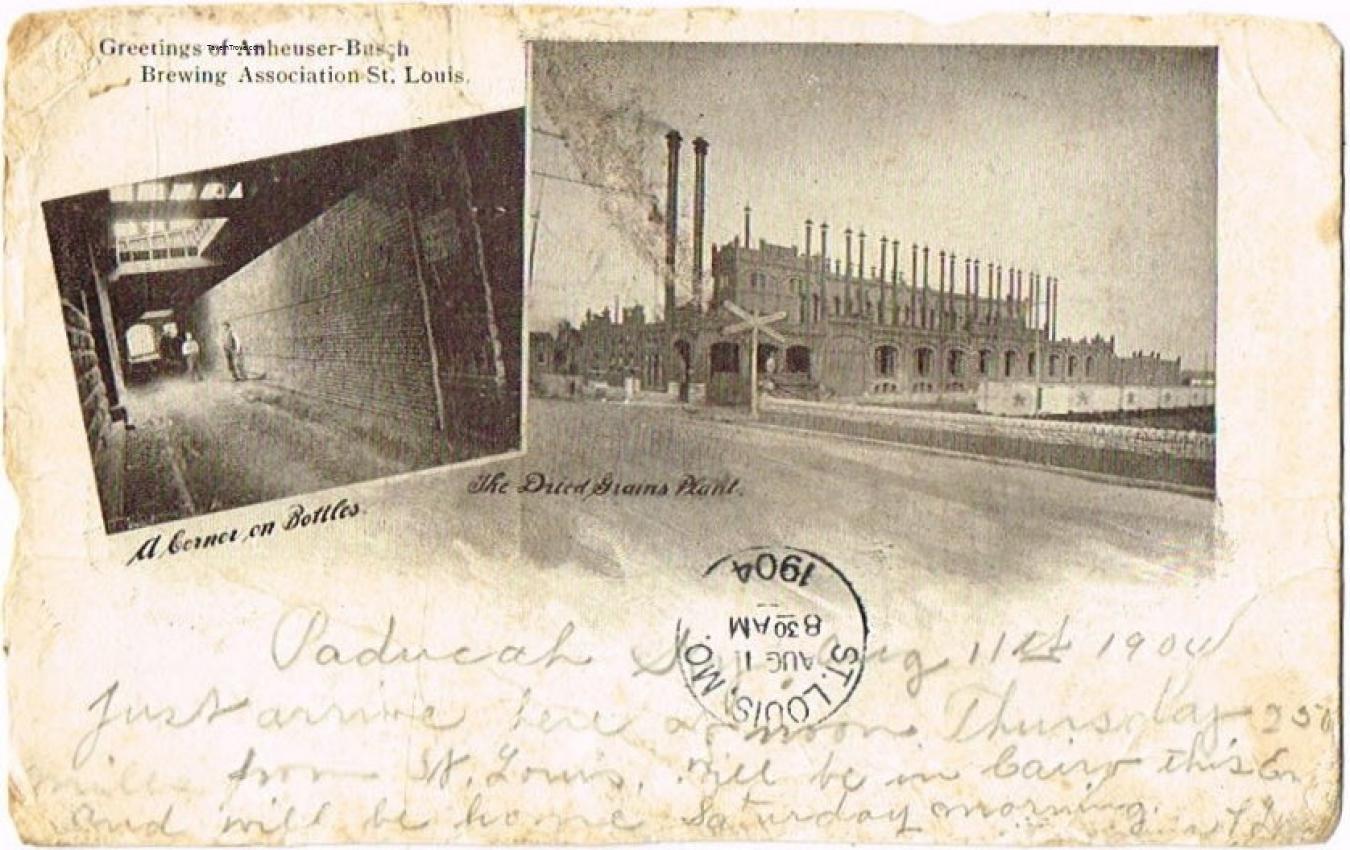 Greetings of Anheuser-Busch
Brewing Association St. Louis.
TavernTrove.com
A Corner on Bottles.
The Dried Grains Plant.
1904
8 30 AM
AUG 1
ST. LOUIS, MO.
Paducah Ky Aug 11th 1904
Just arrive here at noon Thursday 250
miles from St. Louis. Will be in Cairo this
and will be home Saturday morning.